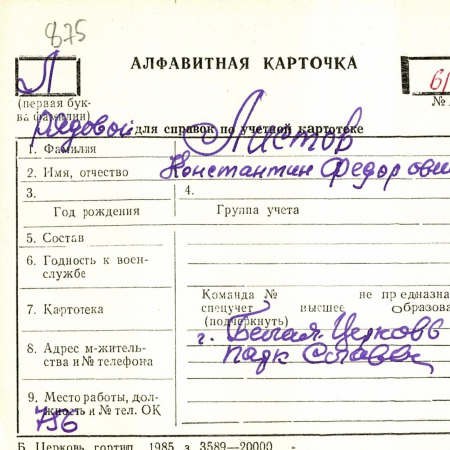 875
Л
АЛФАВИТНАЯ КАРТОЧКА
6/
(первая бук-
ва фамилии)
№
Рядовой для справок по учетной картотеке
1. Фамилия Листов
2. Имя, отчество Константин Федорови
3. 4.
Год рождения Группа учета
5. Состав
6. Годность к воен-
службе
Команда № не предназна
7. Картотека спецучет высшее образова
(подчеркнуть)
г. Белая Церковь
8. Адрес м-житель-
ства и № телефона
парк Славы
9. Место работы, дол-
жность и № тел. ОК
756
Б. Церковь, гортип. 1985 з. 3589—20000